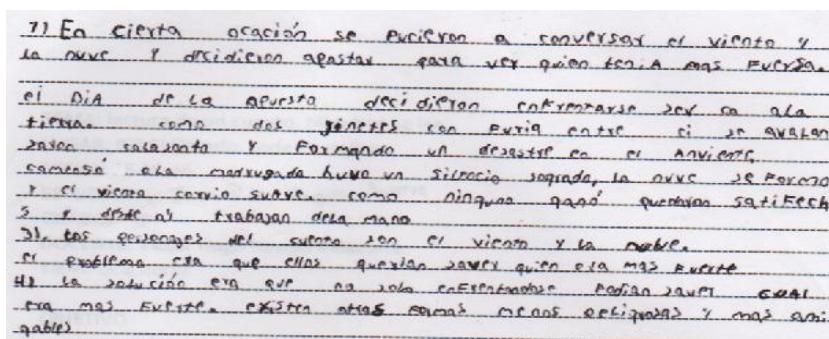 7) En cierta ocación se pucieron a conversar el viento y
la nuve y decidieron apostar para ver quien tenia mas Fuersa.
el DiA de la apuesta decidieron enFrentarse ser ca ala
tierra. como dos ginetes con Furia entre si se avalan
saron y Formando un desastre en el Anviente,
comensó ala madrugada huvo un silecio sograda, la nuve se Formo
y el viento corrio suave. como ninguno ganó quedaron satiFech
s y desde trabajan dela mano
3). Los personages del cuento son el viento y la nuble.
el problema era que ellos querian saver quien era mas Fuerte
4) La solución era que no solo enFrentandose Podian saver CUAl
era mas Fuerte. existen otras Formas menos peligrosas y mas ami
gables